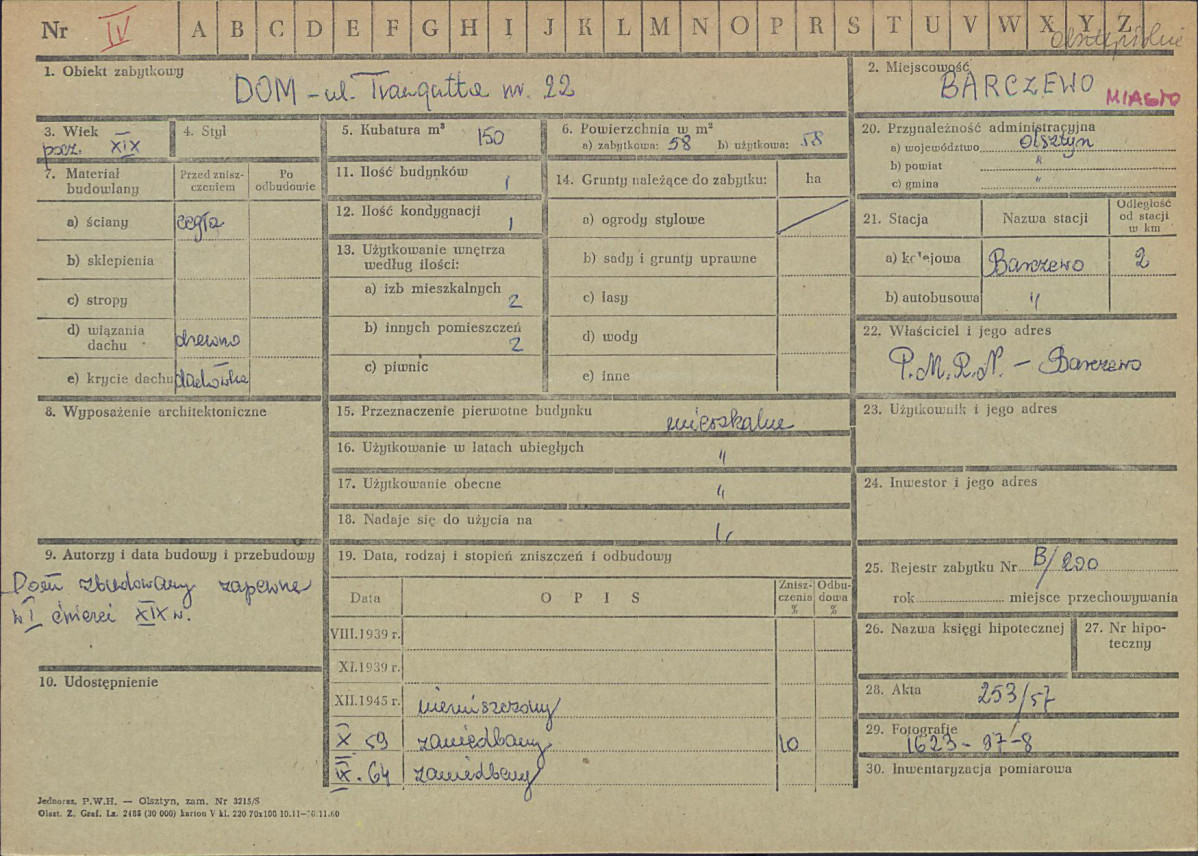 Nr IV A B C D E F G H I J K L M N O P R S T U V W X Y Z
1. Obiekt zabytkowy
DOM - ul. Traugutta nr. 22
2. Miejscowość
BARCZEWO MIASTO
3. Wiek
pocz. XIX
4. Styl
5. Kubatura m³ 150
6. Powierzchnia w m²
a) zabytkowa: 58 b) użytkowa: 58
7. Materiał budowlany
Przed znisz-
czeniem
Po
odbudowie
a) ściany cegła
b) sklepienia
c) stropy
d) wiązania
dachu drewno
e) krycie dachu dachówka
8. Wyposażenie architektoniczne
9. Autorzy i data budowy i przebudowy
Dom zbudowany zapewne
w I ćwierci XIX w.
10. Udostępnienie
11. Ilość budynków 1
12. Ilość kondygnacji 1
13. Użytkowanie wnętrza
według ilości:
a) izb mieszkalnych 2
b) innych pomieszczeń 2
c) piwnic
14. Grunty należące do zabytku: ha
a) ogrody stylowe
b) sady i grunty uprawne
c) lasy
d) wody
e) inne
15. Przeznaczenie pierwotne budynku mieszkalne
16. Użytkowanie w latach ubiegłych "
17. Użytkowanie obecne "
18. Nadaje się do użycia na "
19. Data, rodzaj i stopień zniszczeń i odbudowy
Data OPIS
Znisz-
czenia
%
Odbu-
dowa
%
VIII.1939 r.
XI.1939 r.
XII.1945 r. niezniszczony
X 59 zaniedbany 10
IX. 64 zaniedbany
20. Przynależność administracyjna
a) województwo Olsztyn
b) powiat "
c) gmina "
21. Stacja Nazwa stacji
Odległość
od stacji
w km
a) kolejowa Barczewo 2
b) autobusowa "
22. Właściciel i jego adres
P.M.R.N. - Barczewo
23. Użytkownik i jego adres
24. Inwestor i jego adres
25. Rejestr zabytku Nr B/200
rok miejsce przechowywania
26. Nazwa księgi hipotecznej
27. Nr hipo-
teczny
28. Akta 253/57
29. Fotografie
1623 - 97-8
30. Inwentaryzacja pomiarowa
Jednoraz. P.W.H. — Olsztyn, zam. Nr 3215/S
Olszt. Z. Graf. Lz. 2485 (30 000) karton V kl. 220 70x100 10.11-